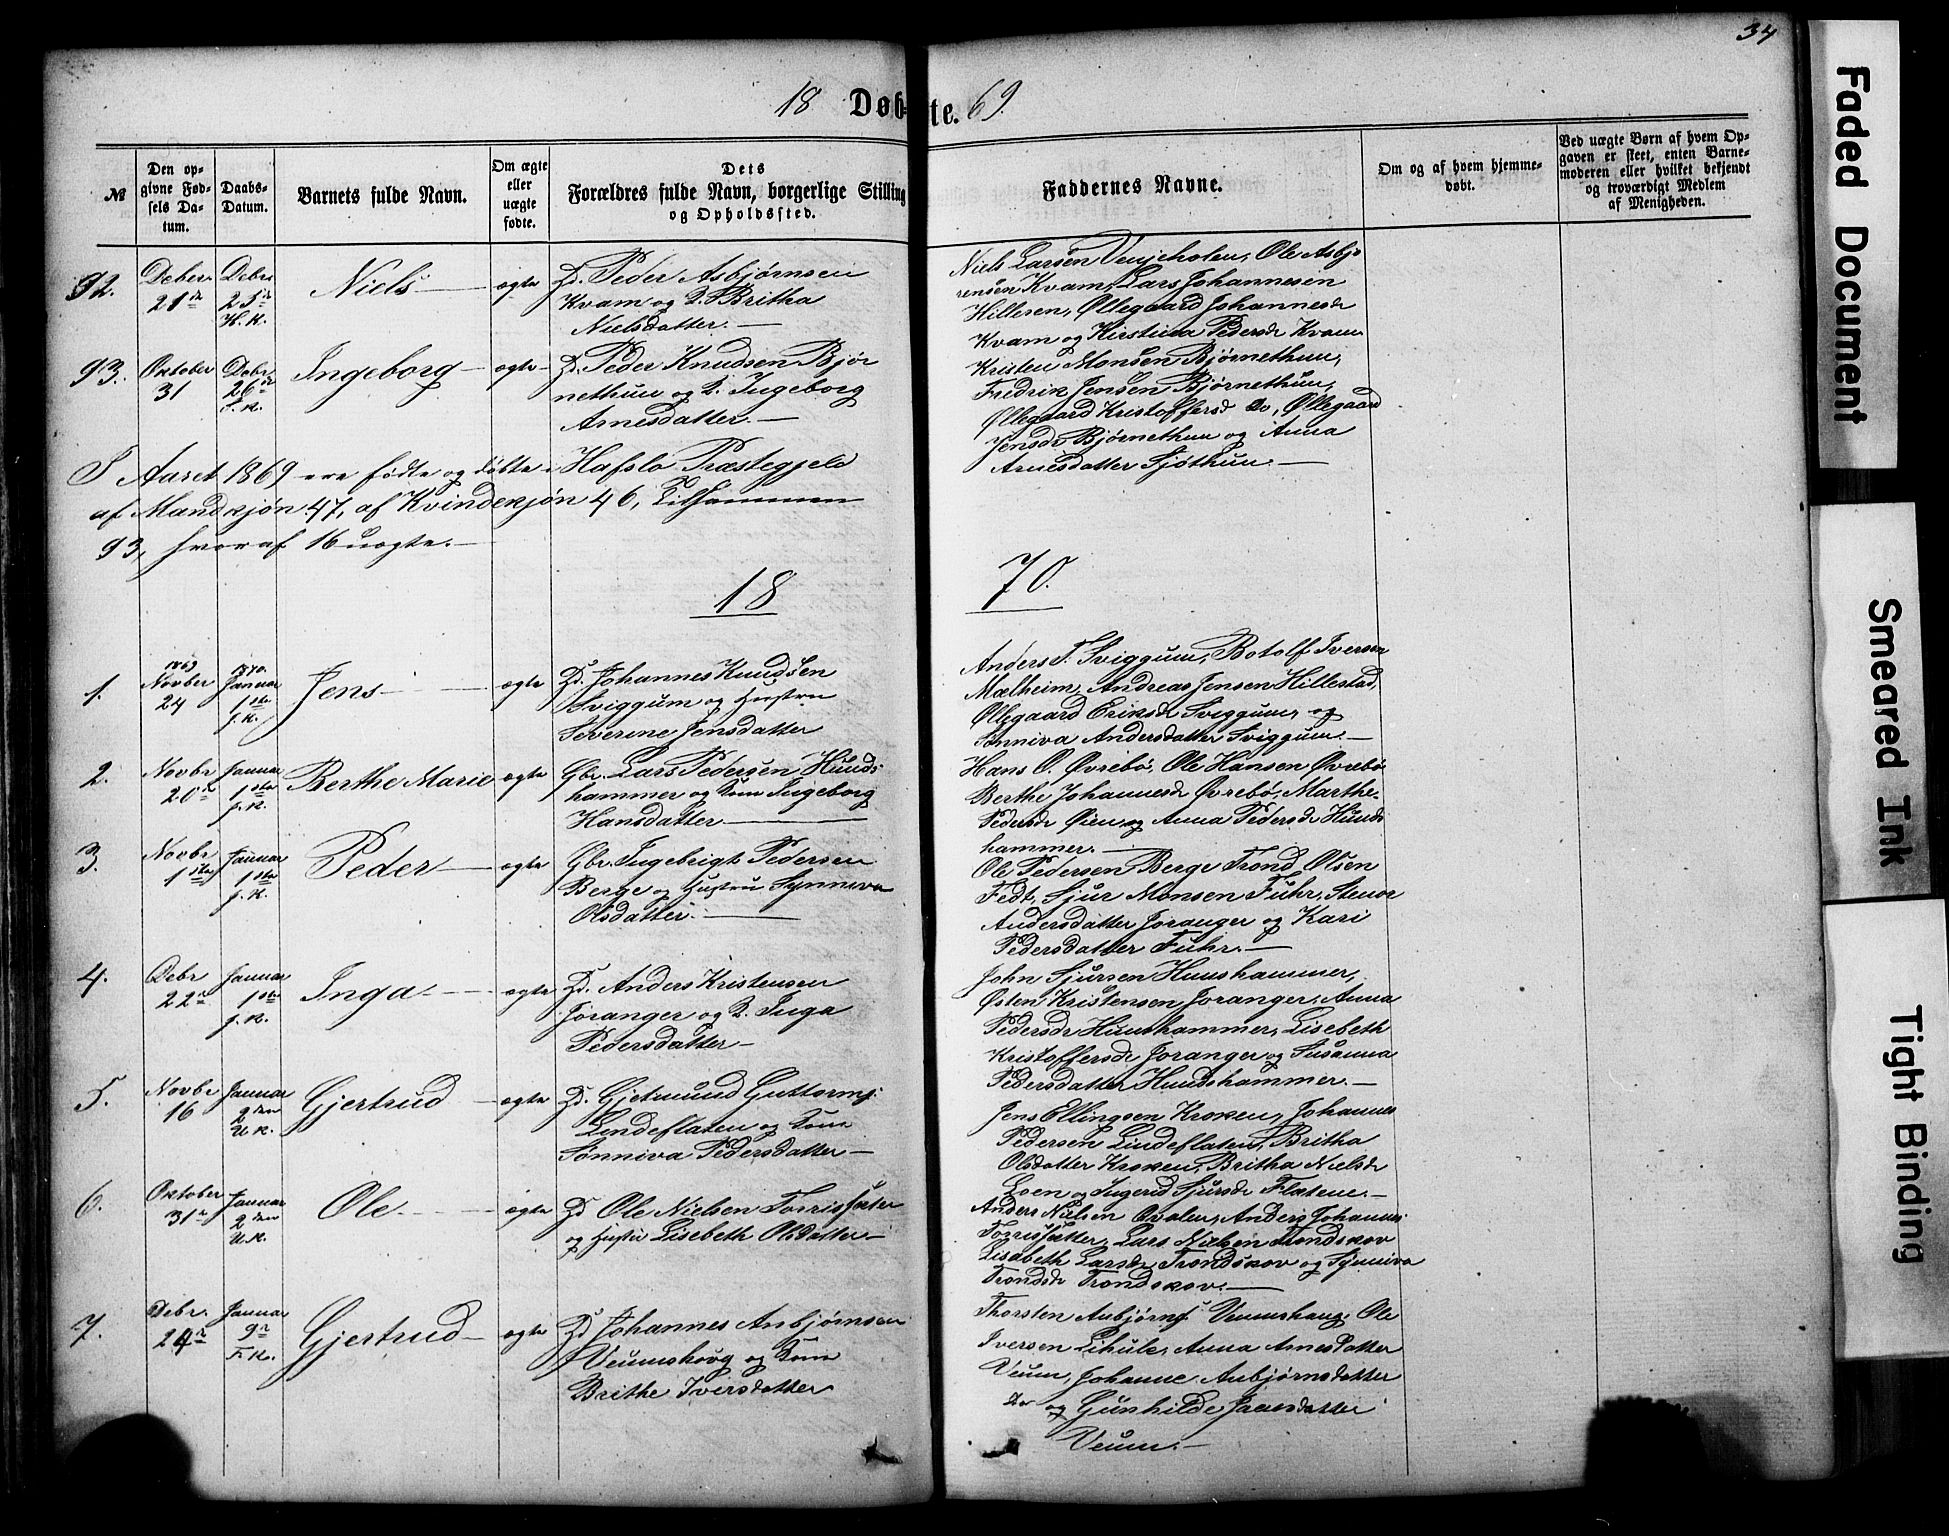 34
18 Døb-te. 69.
№
Den op-
givne Fød-
sels Da-
tum.
Daabs-
Datum.
Barnets fulde Navn.
Om ægte
eller
uægte
fødte.
Dets
Forældres fulde Navn, borgerlige Stilling
og Opholdssted.
Faddernes Navne.
Om og af hvem hjemme-
døbt.
Ved uægte Børn af hvem Op-
gaven er skeet, enten Barne-
moderen eller hvilket bekjendt
og troværdigt Medlem
af Menigheden.
92.
Deber
21de
Debr
25de
H. K.
Niels
ægte
Peder Asbjørnsen
Kvam og K. Britha
Nielsdatter.
Niels Larsen Venjeholen, Ole Asbjø
rensen Kvam, Lars Johannesen
Hillesen, Øllegaard Johannesdr
Kvam og Kirstina Pedersdr Kvam
93.
Oktober
31
Debr
26de
S. K.
Ingeborg
ægte
Peder Knudsen Bjør
nethun og K. Ingeborg
Arnesdatter.
Kristen Monsen Bjørnethun,
Fredrik Jensen Bjørnethun,
Øllegaard Kristoffersd do, Øllegaard
Jensdr Bjørnethun og Anna
Arnesdatter Sjøthun.
I Aaret 1869 ere fødte og døbte i Hafslo Præstegjeld
af Mandkjøn 47, af Kvindekjøn 46, Tilsammen
93, hvoraf 16 uægte.
18 70.
1.
1869
Novber
24
1870.
Januar
1ste
J. K.
Jens
ægte
Johannes Knudsen
Sviggum og Hustru
Severine Jensdatter
Anders T. Sviggum, Botolf Iversen
Mælheim, Andreas Jensen Hillestad,
Øllegaard Eriksdr Sviggum og
Sønniva Andersdatter Sviggum.
2.
Novbr
20de
Januar
1ste
J. K.
Berthe Marie
ægte
Gbr. Lars Pedersen Hunds
hammer og Kone Ingeborg
Hansdatter
Hans O. Øvrebø, Ole Hansen Øvrebø
Berthe Johannesdr Øvrebø, Marthe
Pedersdr Øien og Anna Pedersdr Hunds
hammer.
3.
Novbr
1ste
Januar
1ste
J. K.
Peder
ægte
Gbr. Ingebrigt Pedersen
Berge og Hustru Synneva
Olsdatter.
Ole Pedersen Berge Trond Olsen
Fedt, Sjur Monsen Fuhr, Stenor
Andersdatter Joranger og Kari
Pedersdatter Fuhr.
4.
Debr
22de
Januar
1ste
J. K.
Inga
ægte
Anders Kristensen
Joranger og K. Inga
Pedersdatter
John Sjursen Hunshammer,
Østen Kristensen Joranger, Anna
Pedersdr Hunshammer, Lisebeth
Kristoffersdr Joranger og Susanna
Pedersdatter Hundshammer.
5.
Novbr
16
Januar
2den
U. K.
Gjertrud
ægte
Gjetmund Guttorms.
Lindeflaten og Kone
Sønniva Pedersdatter
Jens Ellingsen Kroken, Johannes
Pedersen Lindeflaten, Britha
Olsdatter Kroken, Britha Nielsdr
Loen og Ingerid Sjursdr Flatene.
6.
Oktober
31te
Januar
2den
U. K.
Ole
ægte
Ole Nielsen Torrissæter
og Hustru Lisebeth Olsdatter
Anders Nielsen Qvalen, Anders Johannes.
Torrissæter, Lars Nielsen Trondskov
Lisabeth Larsdr Trondskov og Synniva
Trondsdr Trondskov.
7.
Debr.
24de
Januar
9de
F. K.
Gjertrud
ægte
Johannes Anbjørnsen
Veumshoug og Kone
Brithe Iversdatter
Thorsten Anbjørns. Veumshaug, Ole
Iversen Lihule, Anna Arnesdatter
Veum, Johanne Anbjørnsdatter
do og Gunhilde Jansdatter
Veum.
Faded Document
Smeared Ink
Tight Binding